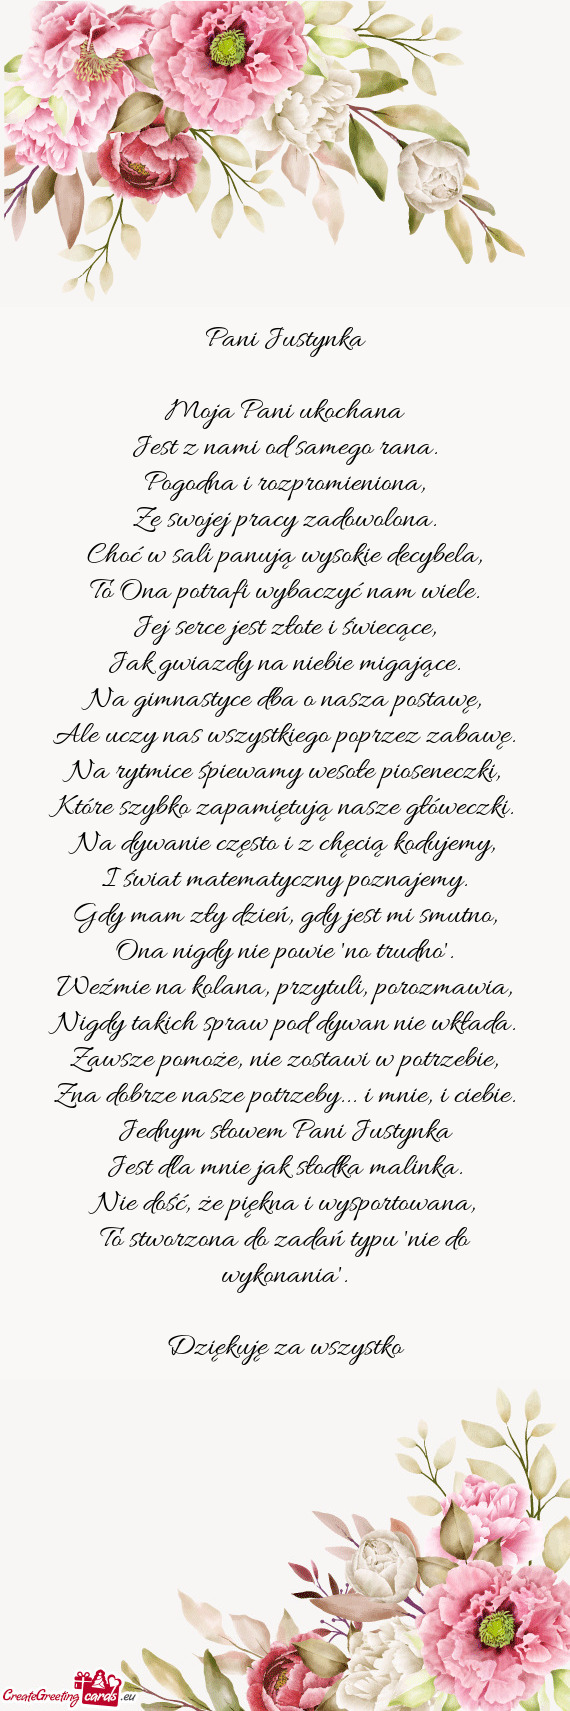 Pani Justynka
Moja Pani ukochana
Jest z nami od samego rana.
Pogodna i rozpromieniona,
Ze swojej pracy zadowolona.
Choć w sali panują wysokie decybela,
To Ona potrafi wybaczyć nam wiele.
Jej serce jest złote i świecące,
Jak gwiazdy na niebie migające.
Na gimnastyce dba o nasza postawę,
Ale uczy nas wszystkiego poprzez zabawę.
Na rytmice śpiewamy wesołe pioseneczki,
Które szybko zapamiętują nasze główeczki.
Na dywanie często i z chęcią kodujemy,
I świat matematyczny poznajemy.
Gdy mam zły dzień, gdy jest mi smutno,
Ona nigdy nie powie 'no trudno'.
Weźmie na kolana, przytuli, porozmawia,
Nigdy takich spraw pod dywan nie wkłada.
Zawsze pomoże, nie zostawi w potrzebie,
Zna dobrze nasze potrzeby... i mnie, i ciebie.
Jednym słowem Pani Justynka
Jest dla mnie jak słodka malinka.
Nie dość, że piękna i wysportowana,
To stworzona do zadań typu 'nie do
wykonania'.
Dziękuję za wszystko
CreateGreetingcards.eu